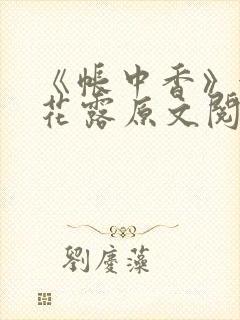 《帐中香》
花露原文阅
刘庆藻